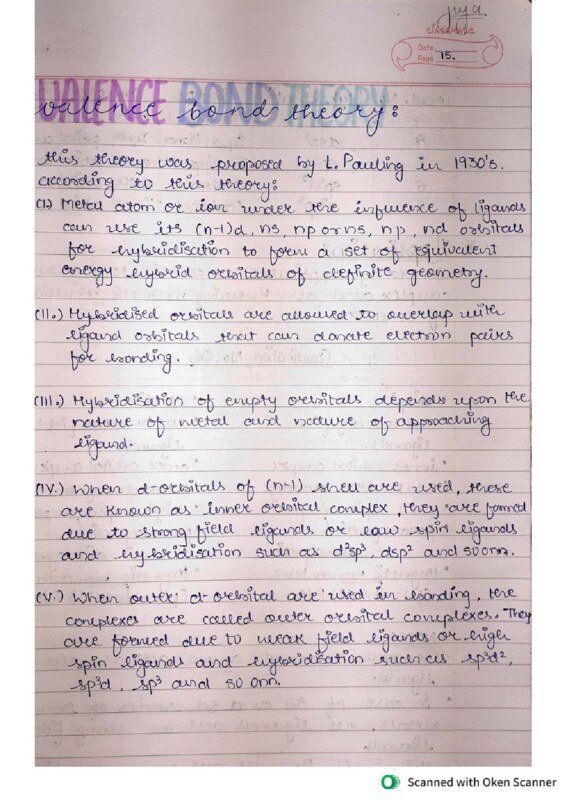 Jiya
classmate
Date
Page 15.
VALENCE BOND THEORY
valence bond theory:
this theory was proposed by L. Pauling in 1930's.
according to this theory:
(I.) Metal atom or ion under the influence of ligands
can use its (n-1)d, ns, np or ns, np, nd orbitals
for hybridisation to form a set of equivalent
energy hybrid orbitals of definite geometry.
(II.) Hybridised orbitals are allowed to overlap with
ligand orbitals that can donate electron pairs
for bonding.
(III.) Hybridisation of empty orbitals depends upon the
nature of metal and nature of approaching
ligand.
(IV.) When d-orbitals of (n-1) shell are used, these
are known as inner orbital complex, they are formed
due to strong field ligands or low spin ligands
and hybridisation such as d²sp³, dsp² and so on.
(V.) When outer d-orbital are used in bonding, the
complexes are called outer orbital complexes. They
are formed due to weak field ligands or high
spin ligands and hybridisation such as sp³d²,
sp³d, sp³ and so onn.
Scanned with Oken Scanner